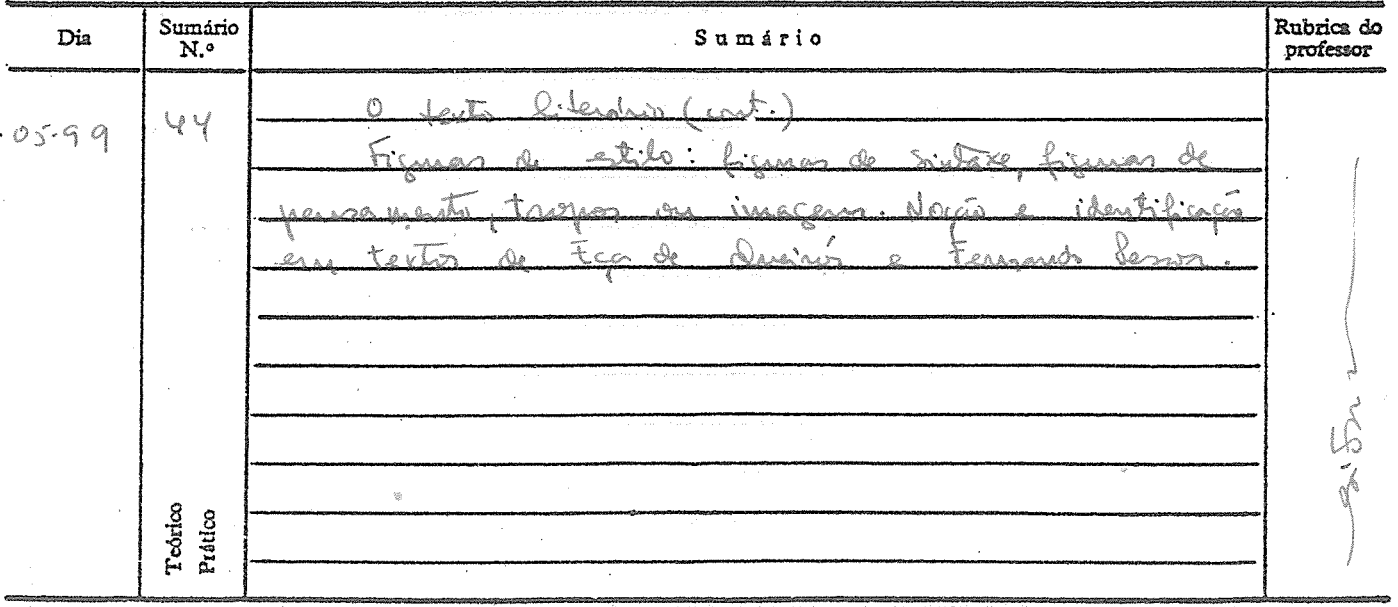 Dia
Sumário
N.º
Sumário
Rubrica do
professor
.05.99
44
O texto literário (cont.)
Figuras de estilo: figuras de sintaxe, figuras de
pensamento, tropos ou imagens. Noção e identificação
em textos de Eça de Queirós e Fernando Pessoa.
Teórico
Prático